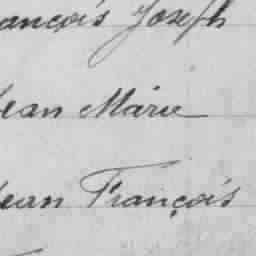 ançois Joseph
Jean Marie
Jean François